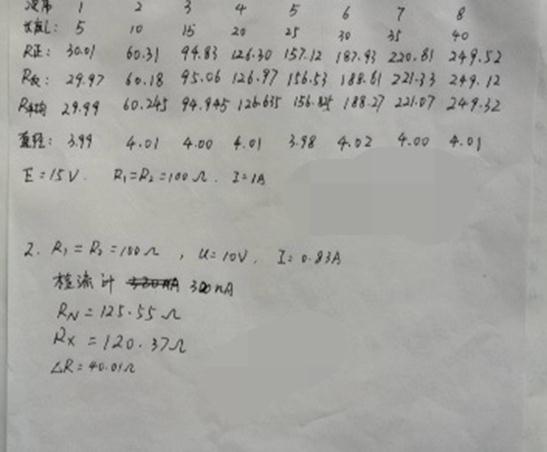 次序 1 2 3 4 5 6 7 8
长度L: 5 10 15 20 25 30 35 40
R正: 30.01 60.31 94.83 126.30 157.12 187.93 220.81 249.52
R反: 29.97 60.18 95.06 126.97 156.53 188.61 221.33 249.12
R平均 29.99 60.245 94.945 126.635 156.825 188.27 221.07 249.32
直径: 3.99 4.01 4.00 4.01 3.98 4.02 4.00 4.01
E=15V. R₁=R₂=100Ω. I=1A
2. R₁=R₂=100Ω, U=10V. I=0.83A
检流计 320nA
R_N=125.55Ω
R_X=120.37Ω
ΔR=40.01Ω